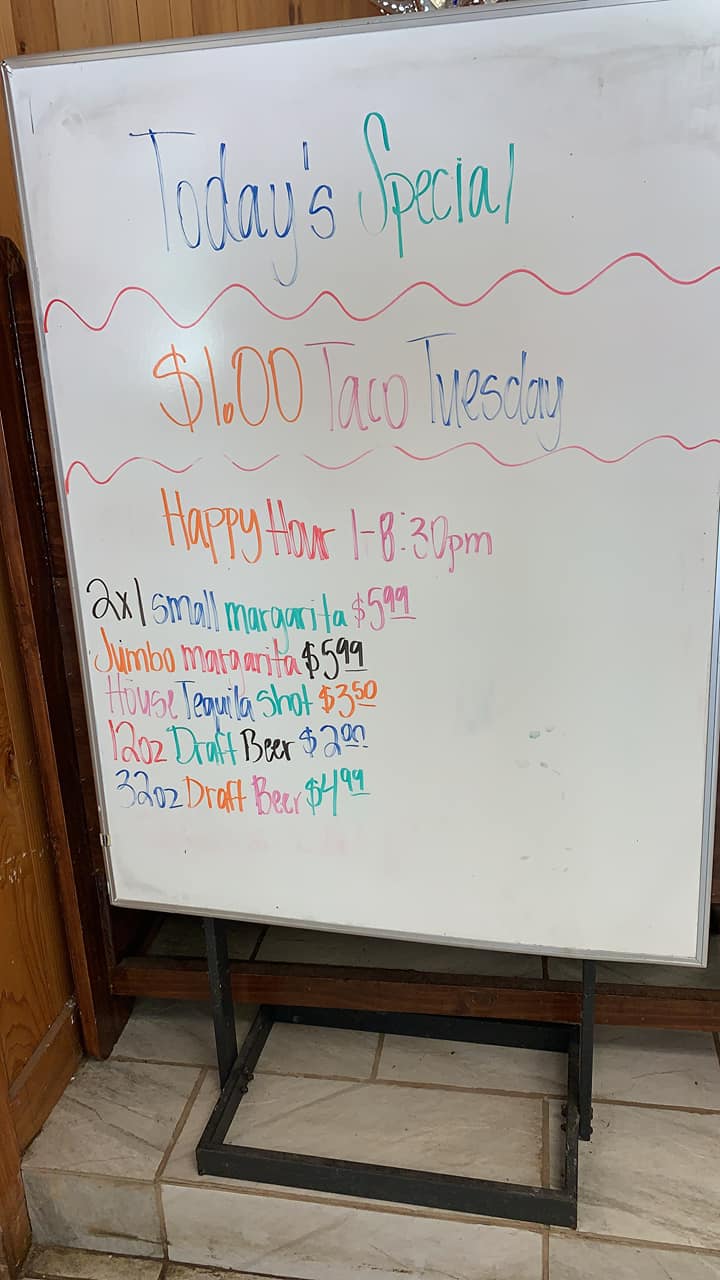 Today's Special
$1.00 Taco Tuesday
Happy Hour 1-8:30pm
2x1 small margarita $5.99
Jumbo margarita $5.99
House Tequila shot $3.50
12oz Draft Beer $2.00
32oz Draft Beer $4.99